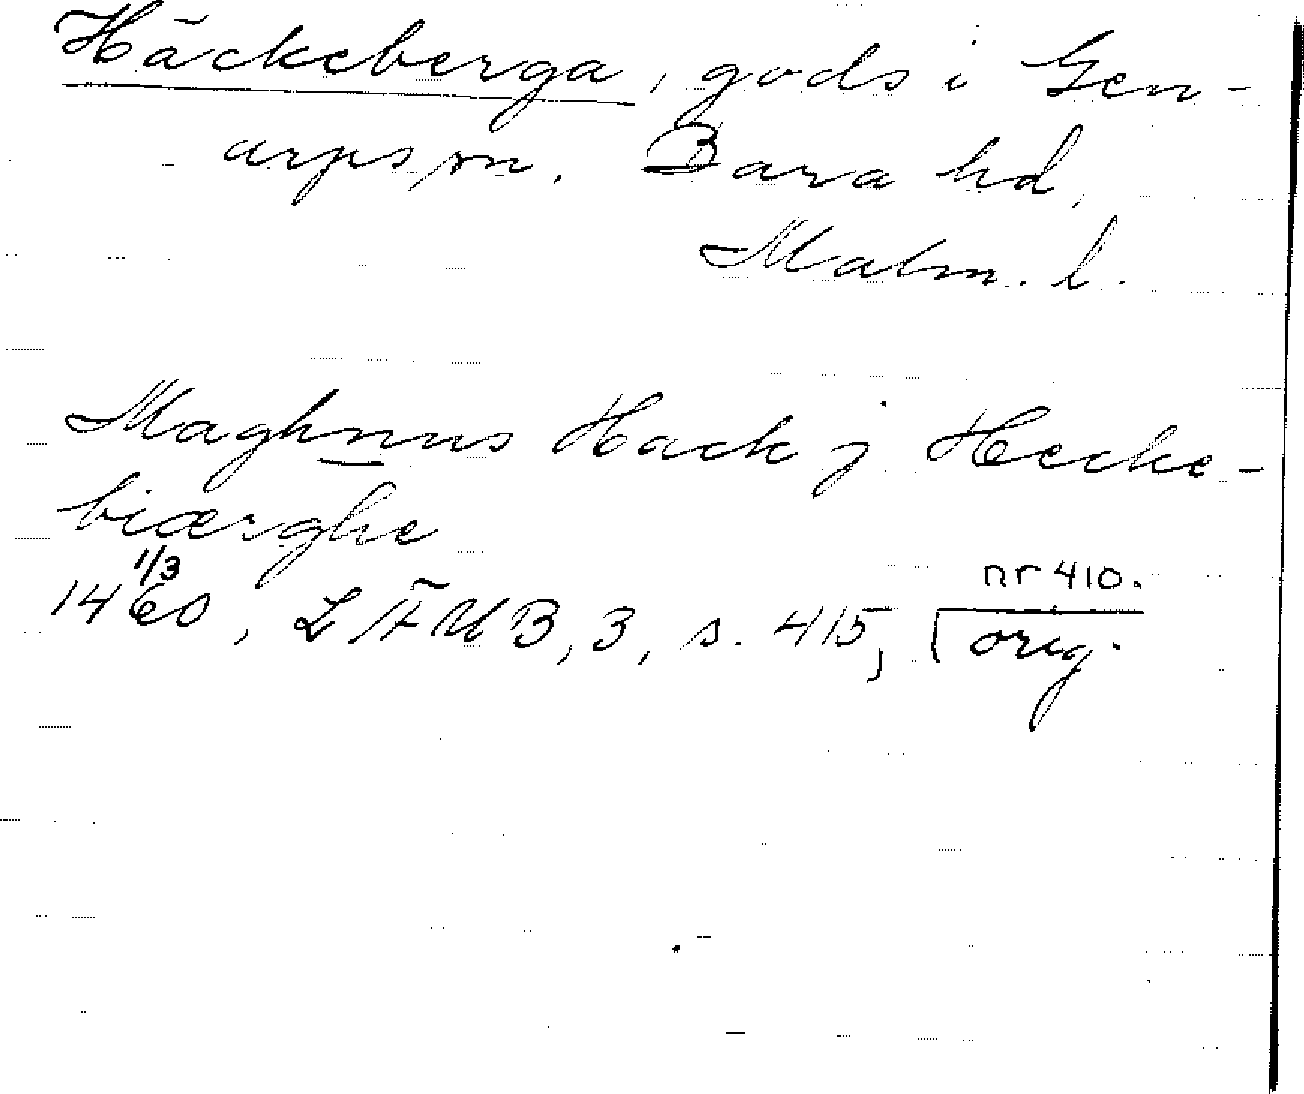 Häckeberga, gods i Gen-
arps sn. Bara hd,
Malm. l.
Maghnus Hack j Hecke-
biærghe
1/3 nr 410.
1460, LÄUB, 3, s. 415, orig.